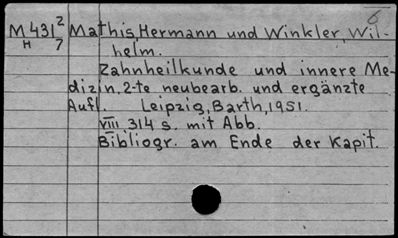 6
M 431 2/7 Mathis, Hermann und Winkler, Wil-
H helm.
Zahnheilkunde und innere Me-
dizin. 2-te neubearb. und ergänzte
Aufl. Leipzig, Barth, 1951.
VIII 314 s. mit Abb.
Bibliogr. am Ende der Kapit.